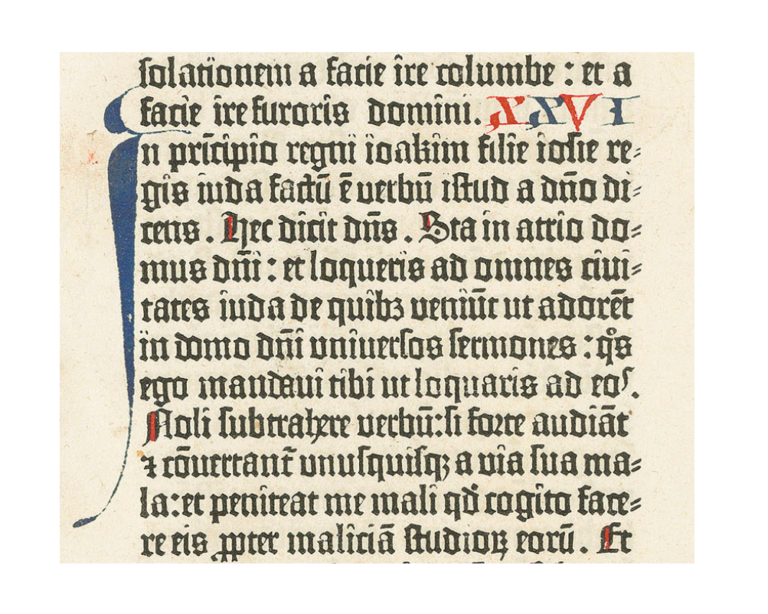 solationem a facie ire columbe : et a
facie ire furoris domini. XXVI
In principio regni ioakim filie iosie re⸗
gis iuda factū ē verbū istud a dño di⸗
cens. Hec dicit dñs. Sta in atrio do⸗
mus dñi : et loqueris ad omnes ciui⸗
tates iuda de quibꝫ veniūt ut adorēt
in domo dñi vniuersos sermones : q̊s
ego mandaui tibi ut loquaris ad eos.
Noli subtrahere verbū : si forte audiāt
⁊ cōuertant̄ vnusquisqꝫ a via sua ma⸗
la : et peniteat me mali qđ cogito face⸗
re eis ꝓpter maliciā studioꝝ eorū. Et